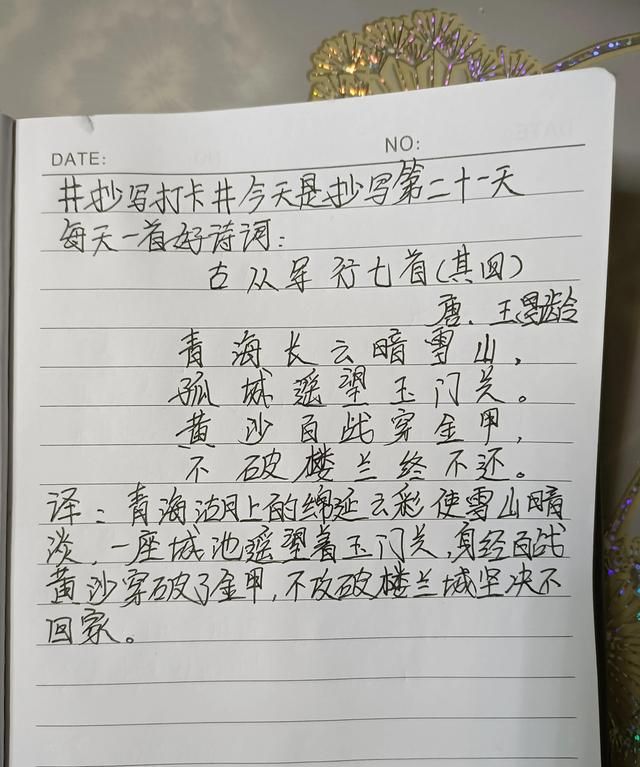 DATE: NO:
#抄写打卡#今天是抄写第二十一天
每天一首好诗词:
古从军行七首(其四)
唐.王昌龄
青海长云暗雪山,
孤城遥望玉门关。
黄沙百战穿金甲,
不破楼兰终不还。
译:青海湖上的绵延云彩使雪山暗
淡,一座城池遥望着玉门关,身经百战
黄沙穿破了金甲,不攻破楼兰城坚决不
回家。